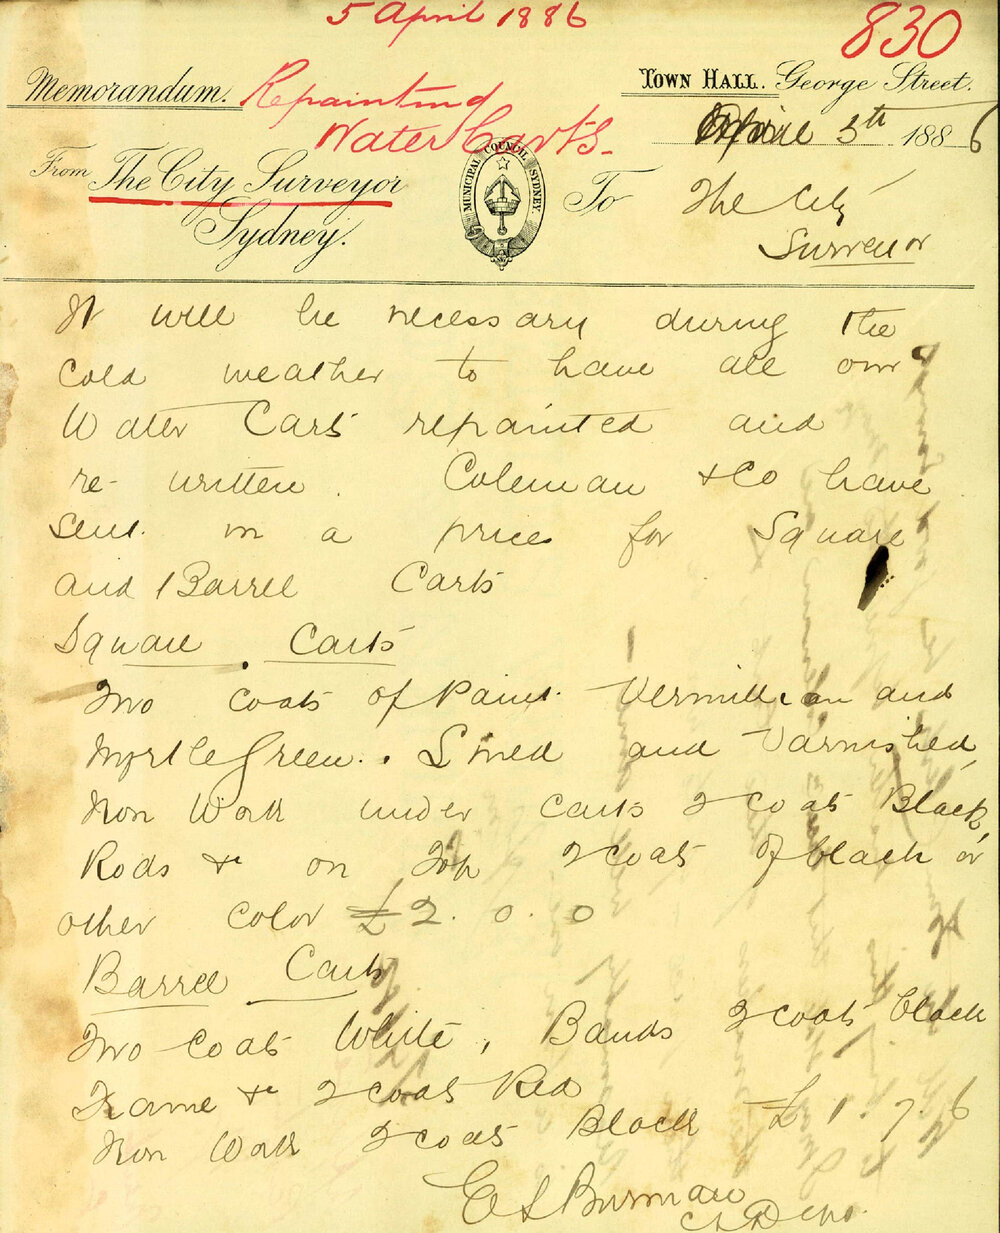 5 April 1886
830
Memorandum.
Repainting
Water Carts.
Town Hall. George Street.
5th 1886
From The City Surveyor
Sydney.
MUNICIPAL COUNCIL SYDNEY
To
The City
Surveyor
It will be necessary during the
cold weather to have all our
Water Carts repainted and
re-written. Coleman & Co have
sent in a price for Square
and Barrel Carts
Square Carts
Two coats of Paint Vermillian and
Myrtle Green. Lined and Varnished,
Iron Work under carts 2 coats Black,
Rods &c on Top 2 coats of black or
other color £2. 0. 0
Barrel Carts
Two coats White, Bands 2 coats black
Frame &c 2 coats Red
Iron Work 2 coats Black £1. 7. 6